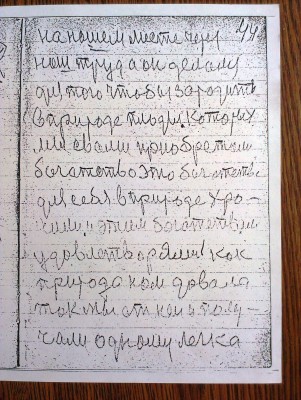 44
на нашем месте через
наш труд а он делаем
для того чтобы зародить
в природе плоды которых
мы своими приобретали
богатство это богатство
для себя в природе хра-
нили и этим богатством
удовлетворяли как
природа нам давала
так мы от нея и полу-
чали одному легка